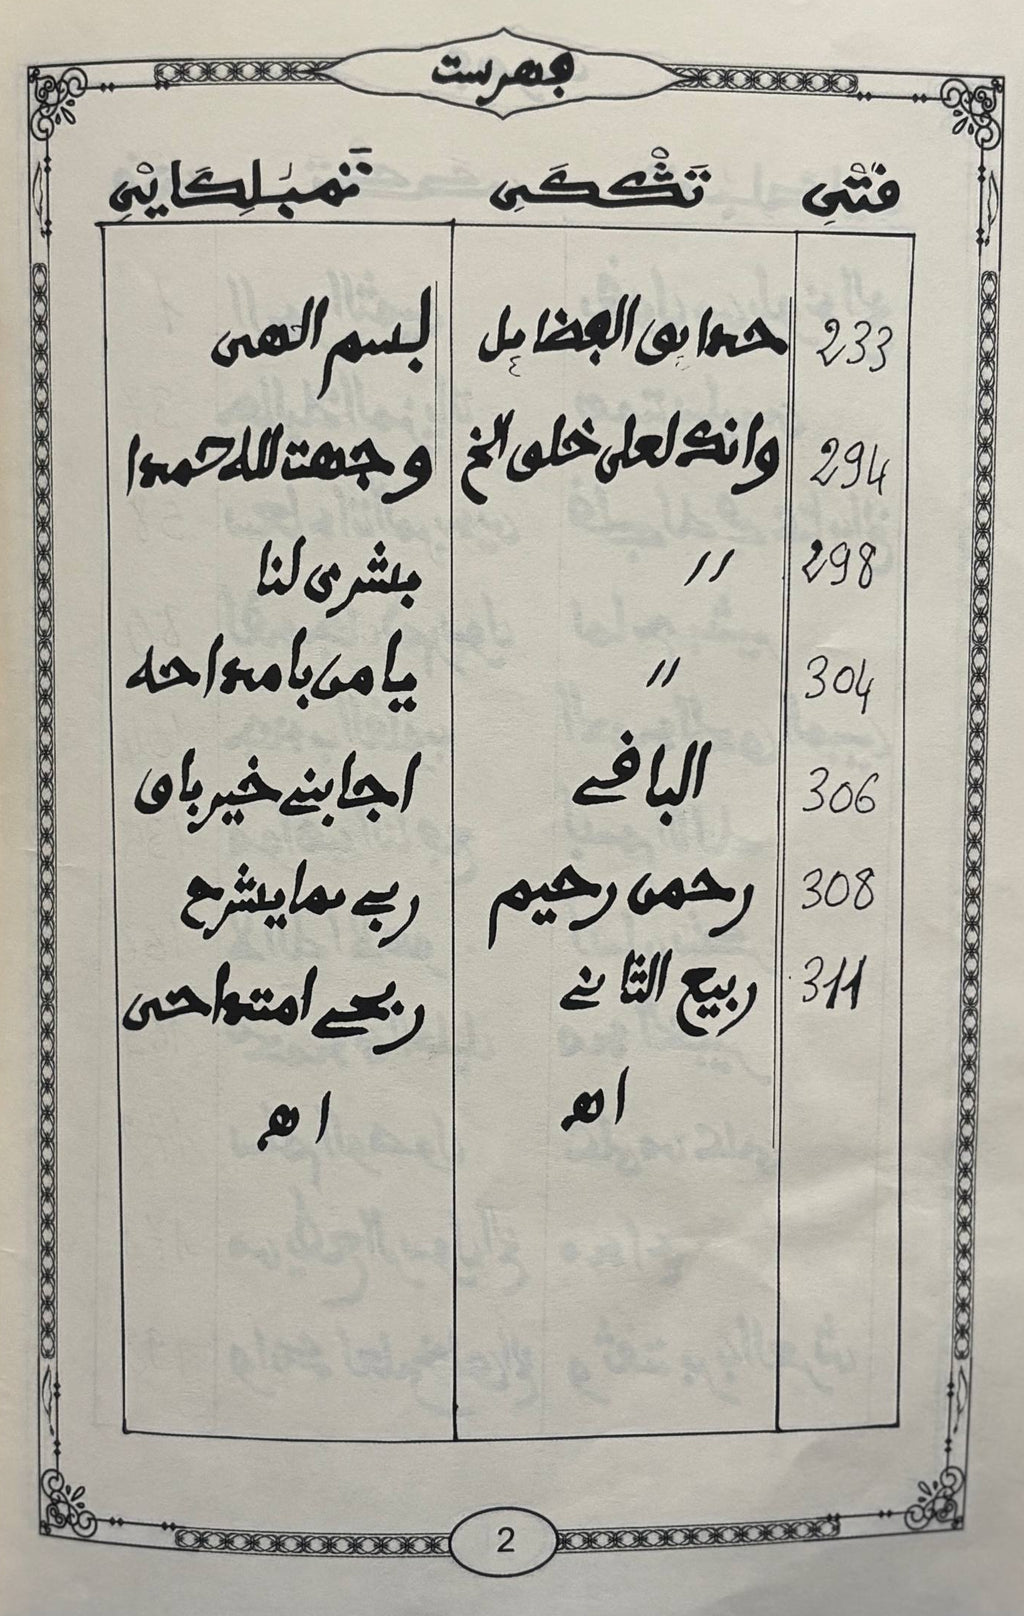 فهرست
233 حدايق الفضايل بسم الهى
294 وانك لعلى خلق الخ وجهت لله حمدا
298 // بشرى لنا
304 // يا من بامداحه
306 الباقے اجابنے خير باق
308 رحمن رحيم ربے بما يشرح
311 ربيع الثانے ربحے امتداحى
اه اه
2